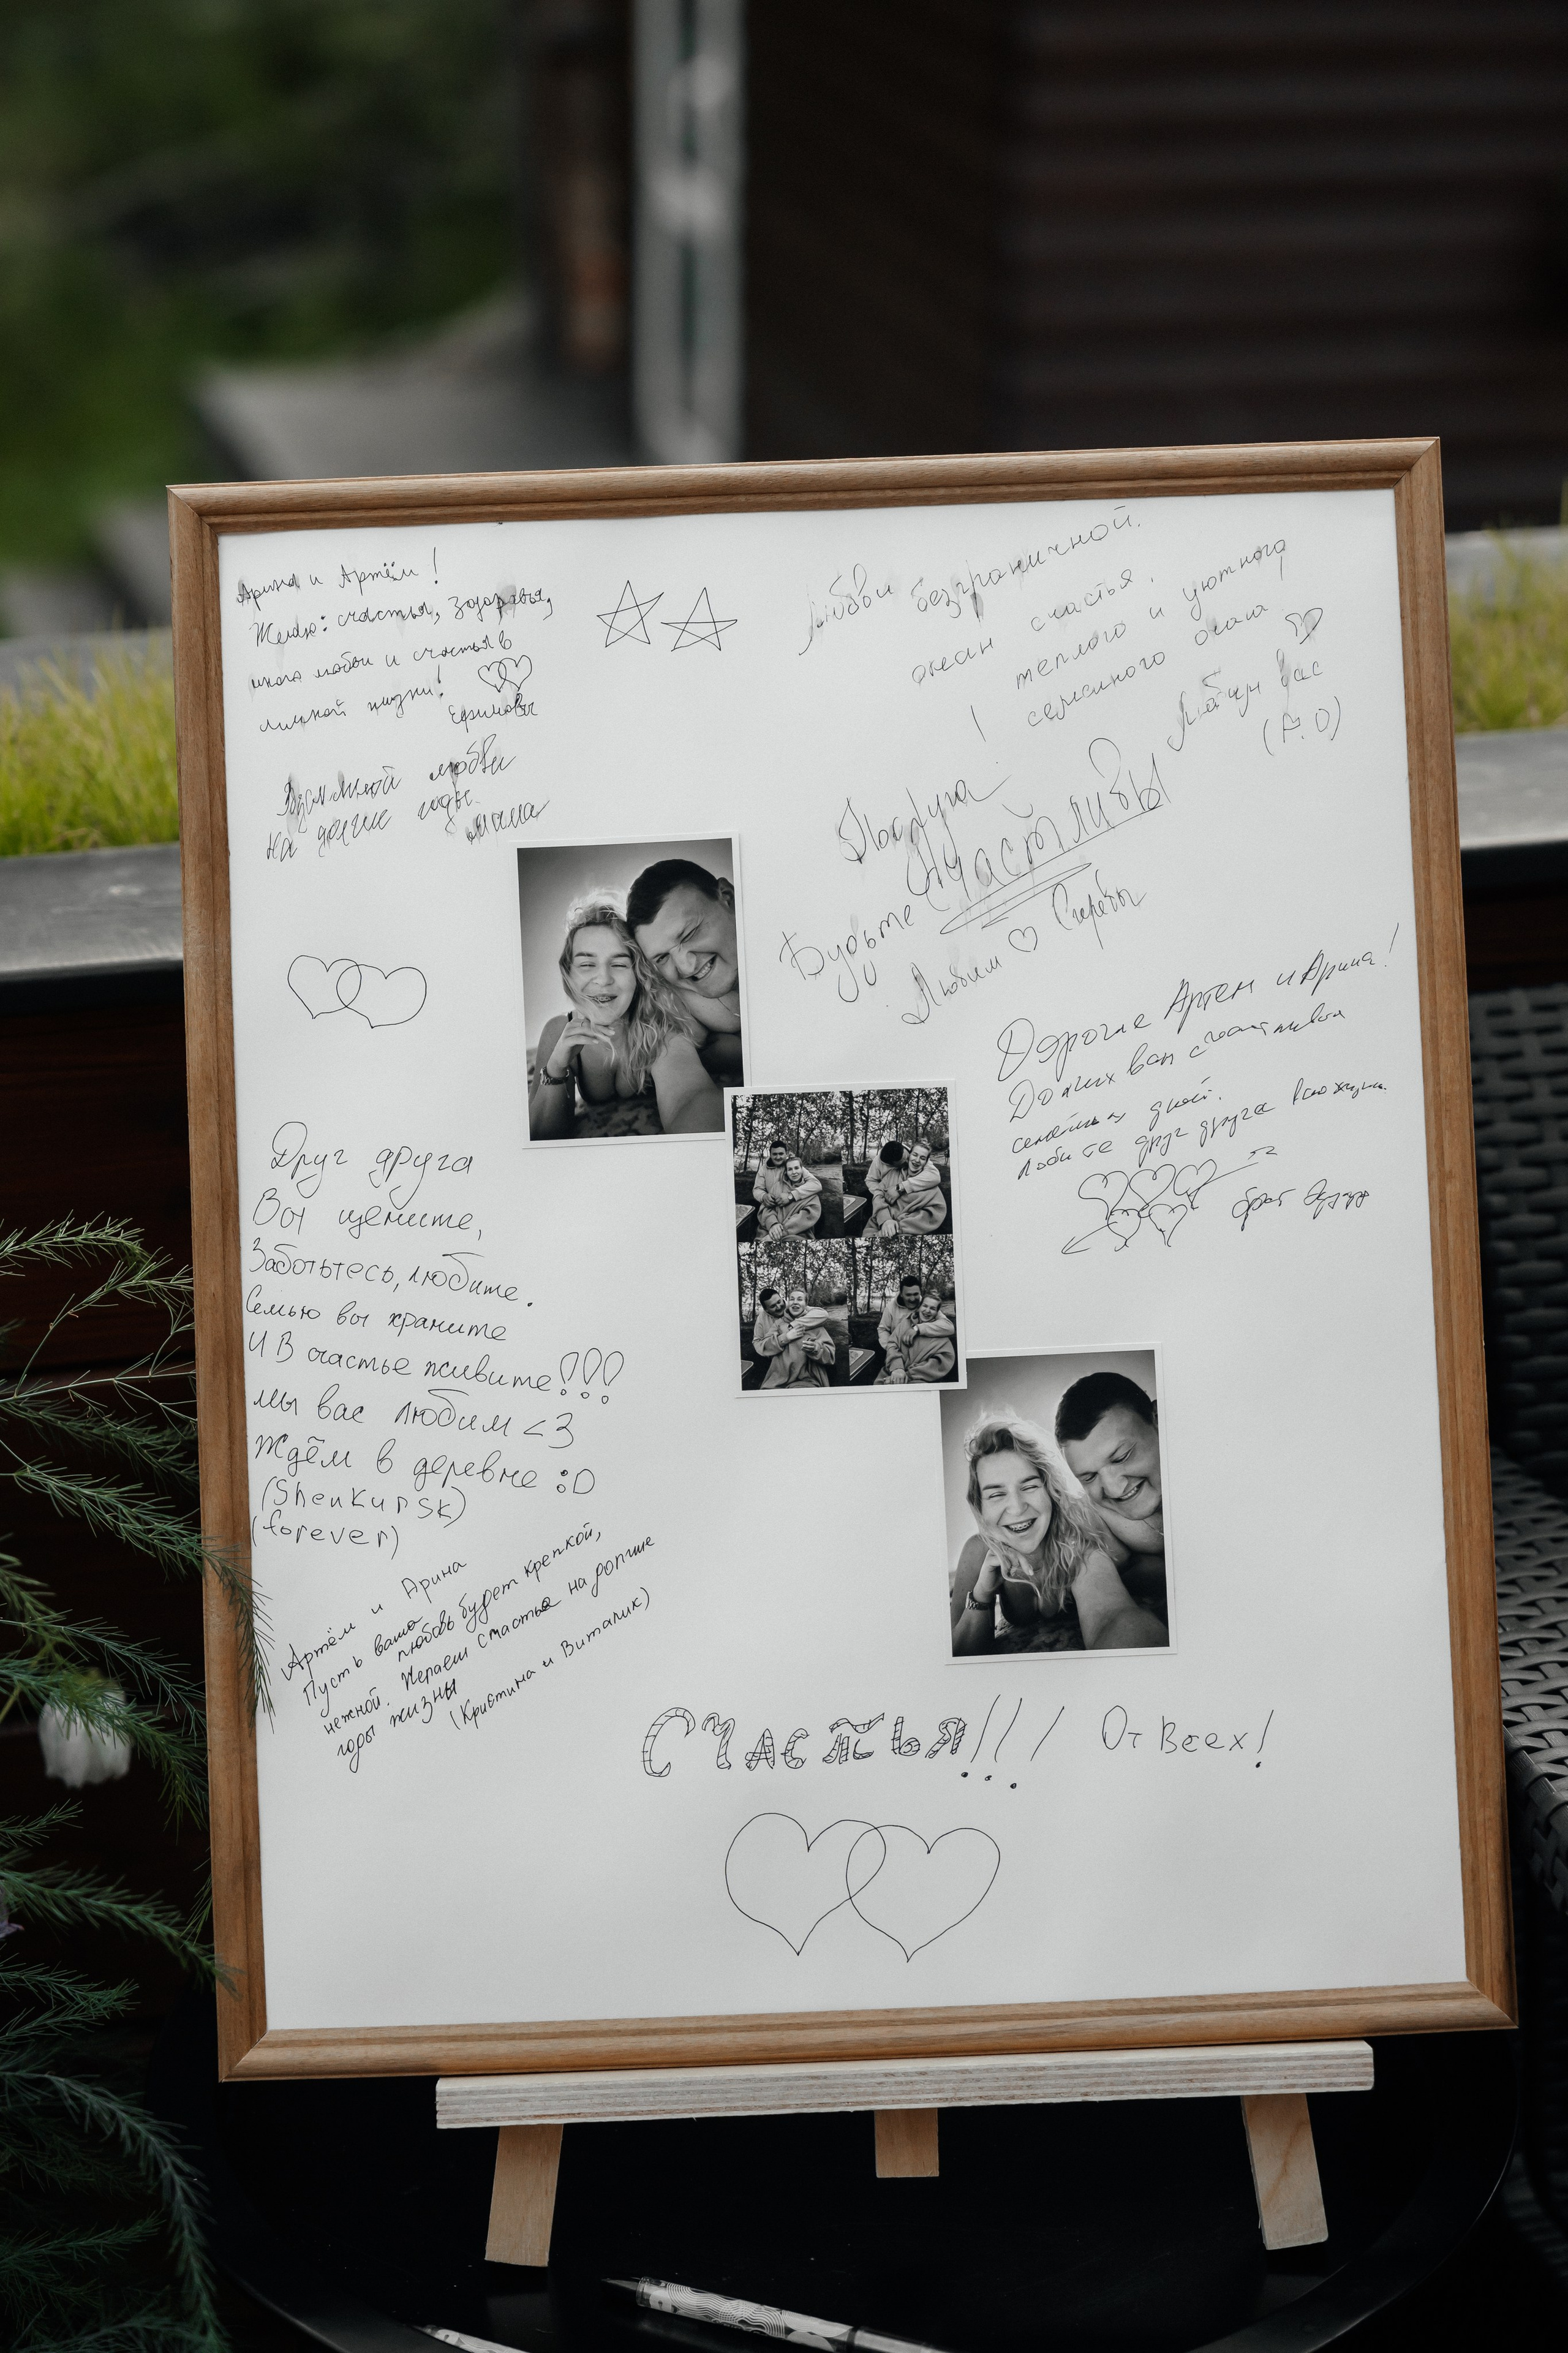 Арина и Артём!
Желаю: счастья, здоровья,
много любви и счастья в
личной жизни!
Ефимовы
Взаимной любви
на долгие годы.
Мама
Любви безграничной,
океан счастья,
теплого и уютного
семейного очага!
Любим вас
(А.О)
Подруга!
Будьте Счастливы
Любим
Дорогие Артем и Арина!
Долгих вам счастливых
семейных дней.
Любите друг друга всю жизнь.
брат
Друг друга
Вы цените,
Заботьтесь, любите.
Семью вы храните
И В счастье живите!!!
мы вас любим <3
Ждём в деревне :D
(Shenkursk)
(forever)
Артём и Арина
Пусть ваша любовь будет крепкой,
нежной. Желаем счастья на долгие
годы жизни
(Кристина и Виталик)
Счастья!!! От Всех!